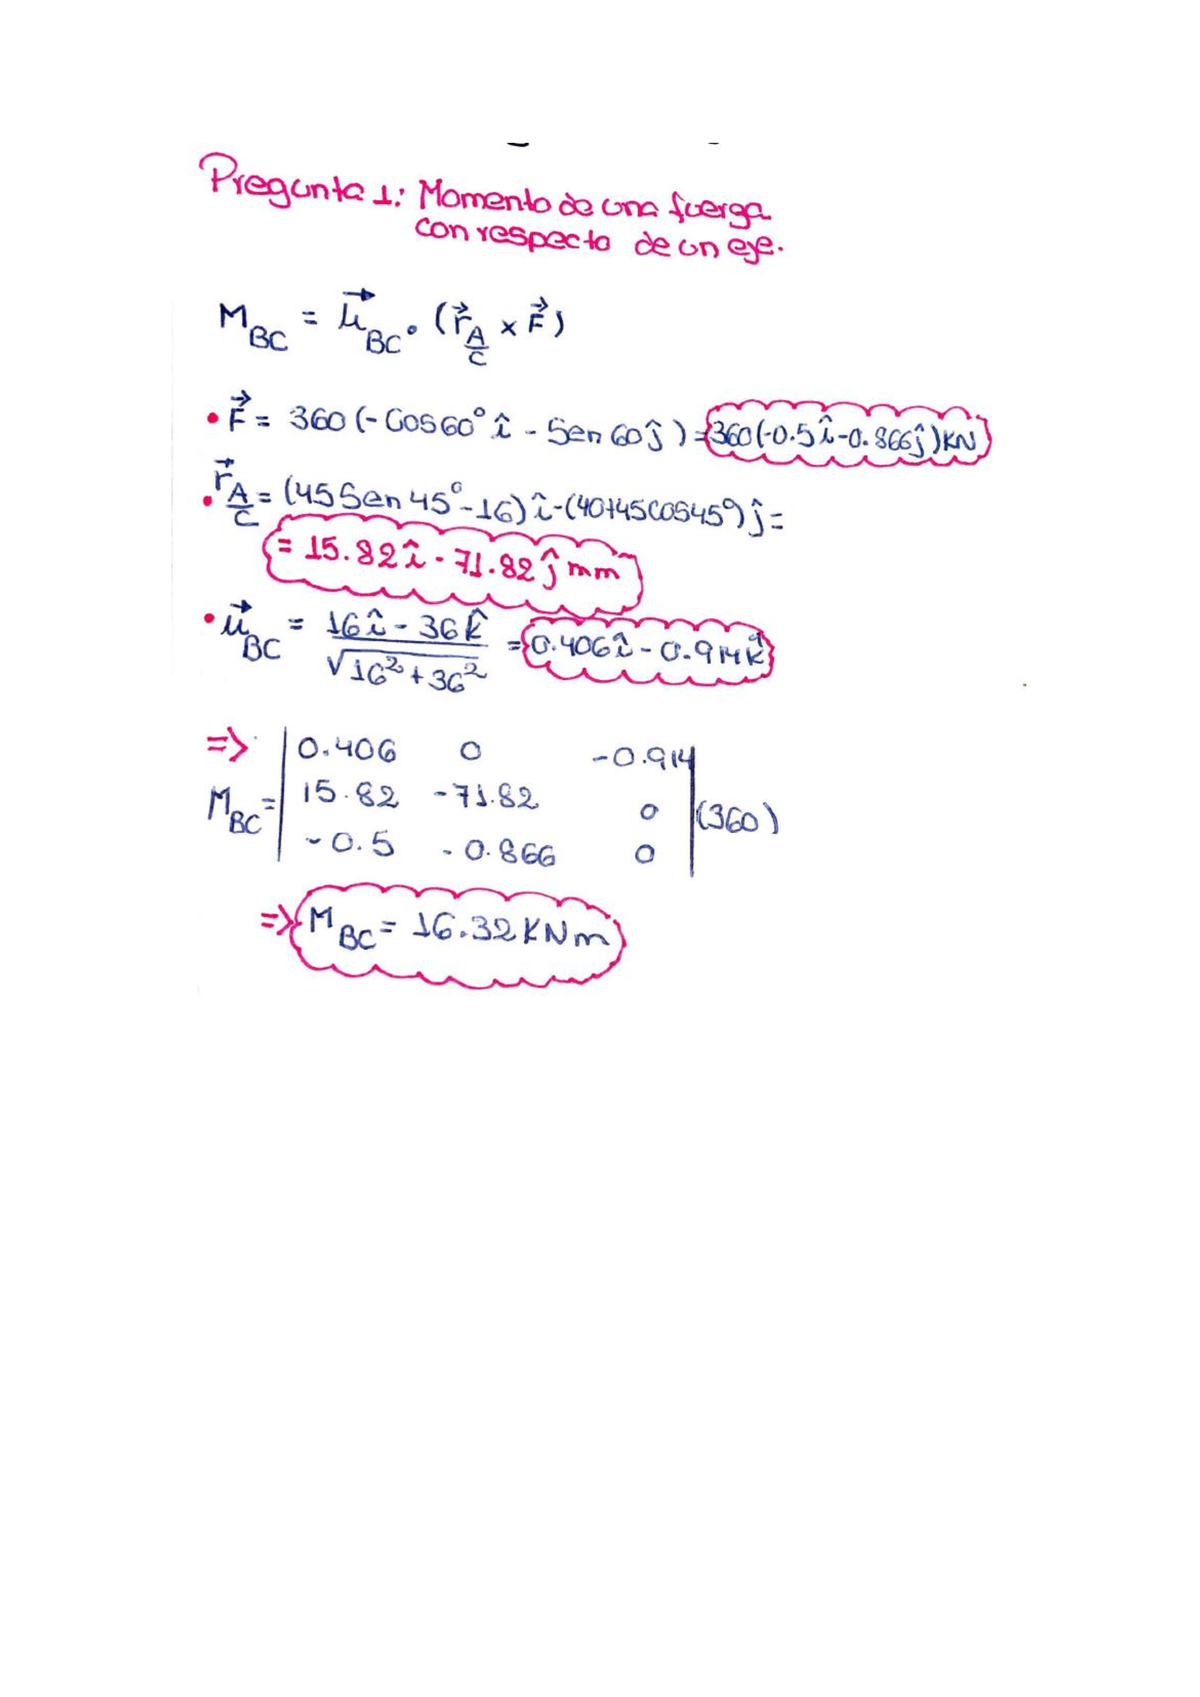 Pregunta 1: Momento de una fuerza
con respecto de un eje.
M_BC = μ⃗_BC • (r⃗_A/C × F⃗)
• F⃗ = 360 (- Cos 60° î - Sen 60 ĵ) = 360(-0.5 î - 0.866 ĵ) KN
• r⃗_A/C = (45 Sen 45° - 16) î - (40+45 cos 45°) ĵ =
= 15.82 î - 71.82 ĵ mm
• μ⃗_BC = 16 î - 36 k̂ / √16² + 36² = 0.406 î - 0.914 k̂
=> | 0.406 0 -0.914 |
M_BC = | 15.82 -71.82 0 | (360)
| -0.5 -0.866 0 |
=> M_BC = 16.32 KN m